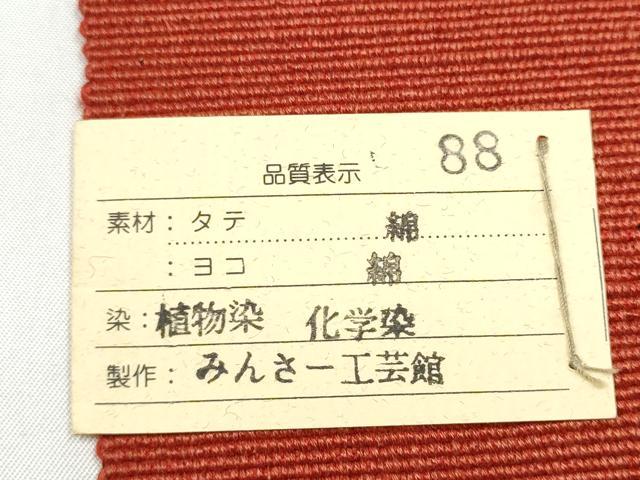 88
品質表示
素材：タテ 綿
：ヨコ 綿
染：植物染 化学染
製作：みんさー工芸館